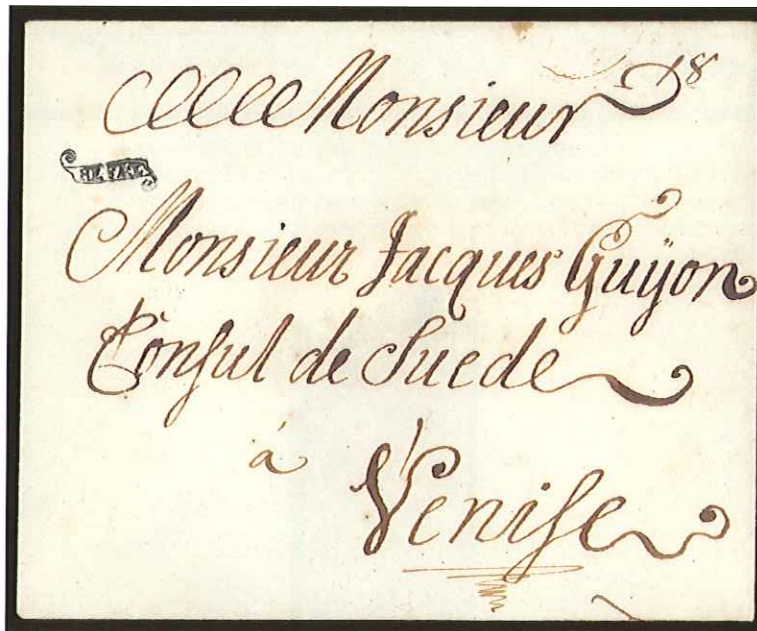 Monsieur
Monsieur Jacques Guÿon
Conſul de Suede
á
Veniſe